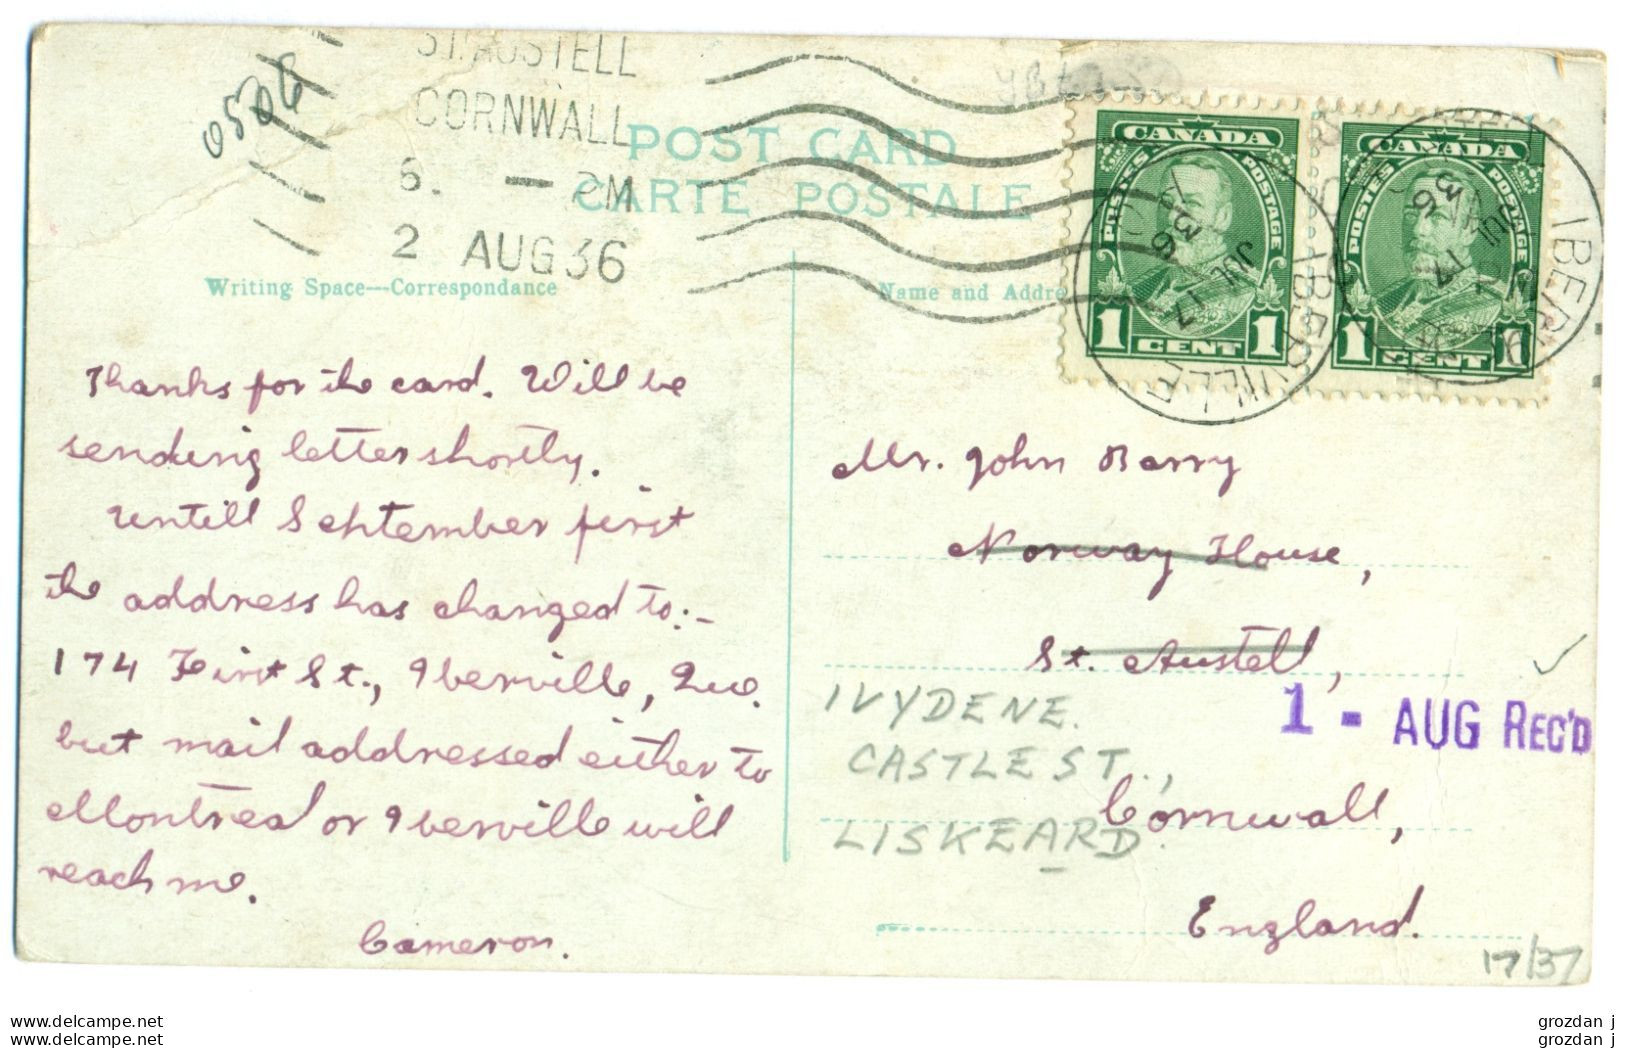 0506
ST. AUSTELL
CORNWALL
6. — PM
2 AUG 36
POST CARD
CARTE POSTALE
Writing Space—Correspondance
Name and Addre
CANADA
POSTES
POSTAGE
1 CENT 1
CANADA
POSTES
POSTAGE
1 CENT 1
IBERVILLE
JUL 17
36
IBERVILLE
JUL 17
36
Thanks for the card. Will be
sending letter shortly.
Untill September first
the address has changed to:-
174 First St., Iberville, Que.
but mail addressed either to
Montreal or Iberville will
reach me.
Cameron.
Mr. John Barry
Norway House,
St. Austell,
Cornwall,
England.
IVYDENE.
CASTLE ST.,
LISKEARD.
1 - AUG REC'D
17/37
www.delcampe.net
www.delcampe.net
grozdan j
grozdan j